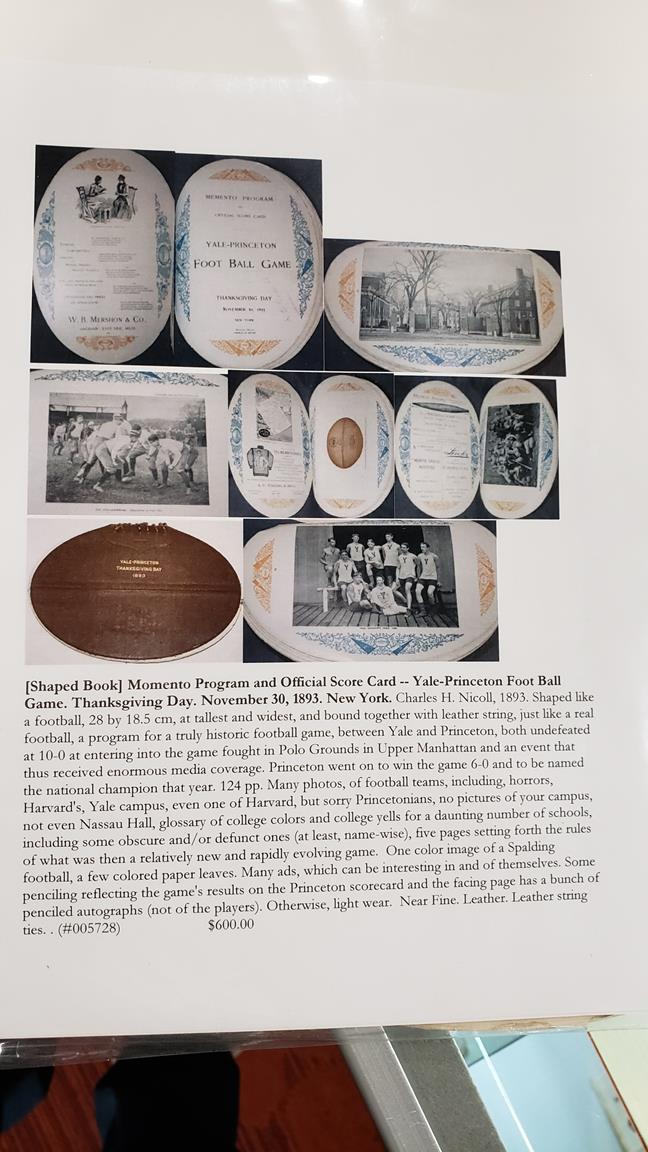 W. B. MERSHON & CO.
MEMENTO PROGRAM
OFFICIAL SCORE CARD
YALE-PRINCETON
FOOT BALL GAME
THANKSGIVING DAY
NOVEMBER 30, 1893
NEW YORK
YALE-PRINCETON
THANKSGIVING DAY
1893
[Shaped Book] Momento Program and Official Score Card -- Yale-Princeton Foot Ball
Game. Thanksgiving Day. November 30, 1893. New York. Charles H. Nicoll, 1893. Shaped like
a football, 28 by 18.5 cm, at tallest and widest, and bound together with leather string, just like a real
football, a program for a truly historic football game, between Yale and Princeton, both undefeated
at 10-0 at entering into the game fought in Polo Grounds in Upper Manhattan and an event that
thus received enormous media coverage. Princeton went on to win the game 6-0 and to be named
the national champion that year. 124 pp. Many photos, of football teams, including, horrors,
Harvard's, Yale campus, even one of Harvard, but sorry Princetonians, no pictures of your campus,
not even Nassau Hall, glossary of college colors and college yells for a daunting number of schools,
including some obscure and/or defunct ones (at least, name-wise), five pages setting forth the rules
of what was then a relatively new and rapidly evolving game. One color image of a Spalding
football, a few colored paper leaves. Many ads, which can be interesting in and of themselves. Some
penciling reflecting the game's results on the Princeton scorecard and the facing page has a bunch of
penciled autographs (not of the players). Otherwise, light wear. Near Fine. Leather. Leather string
ties. . (#005728) $600.00